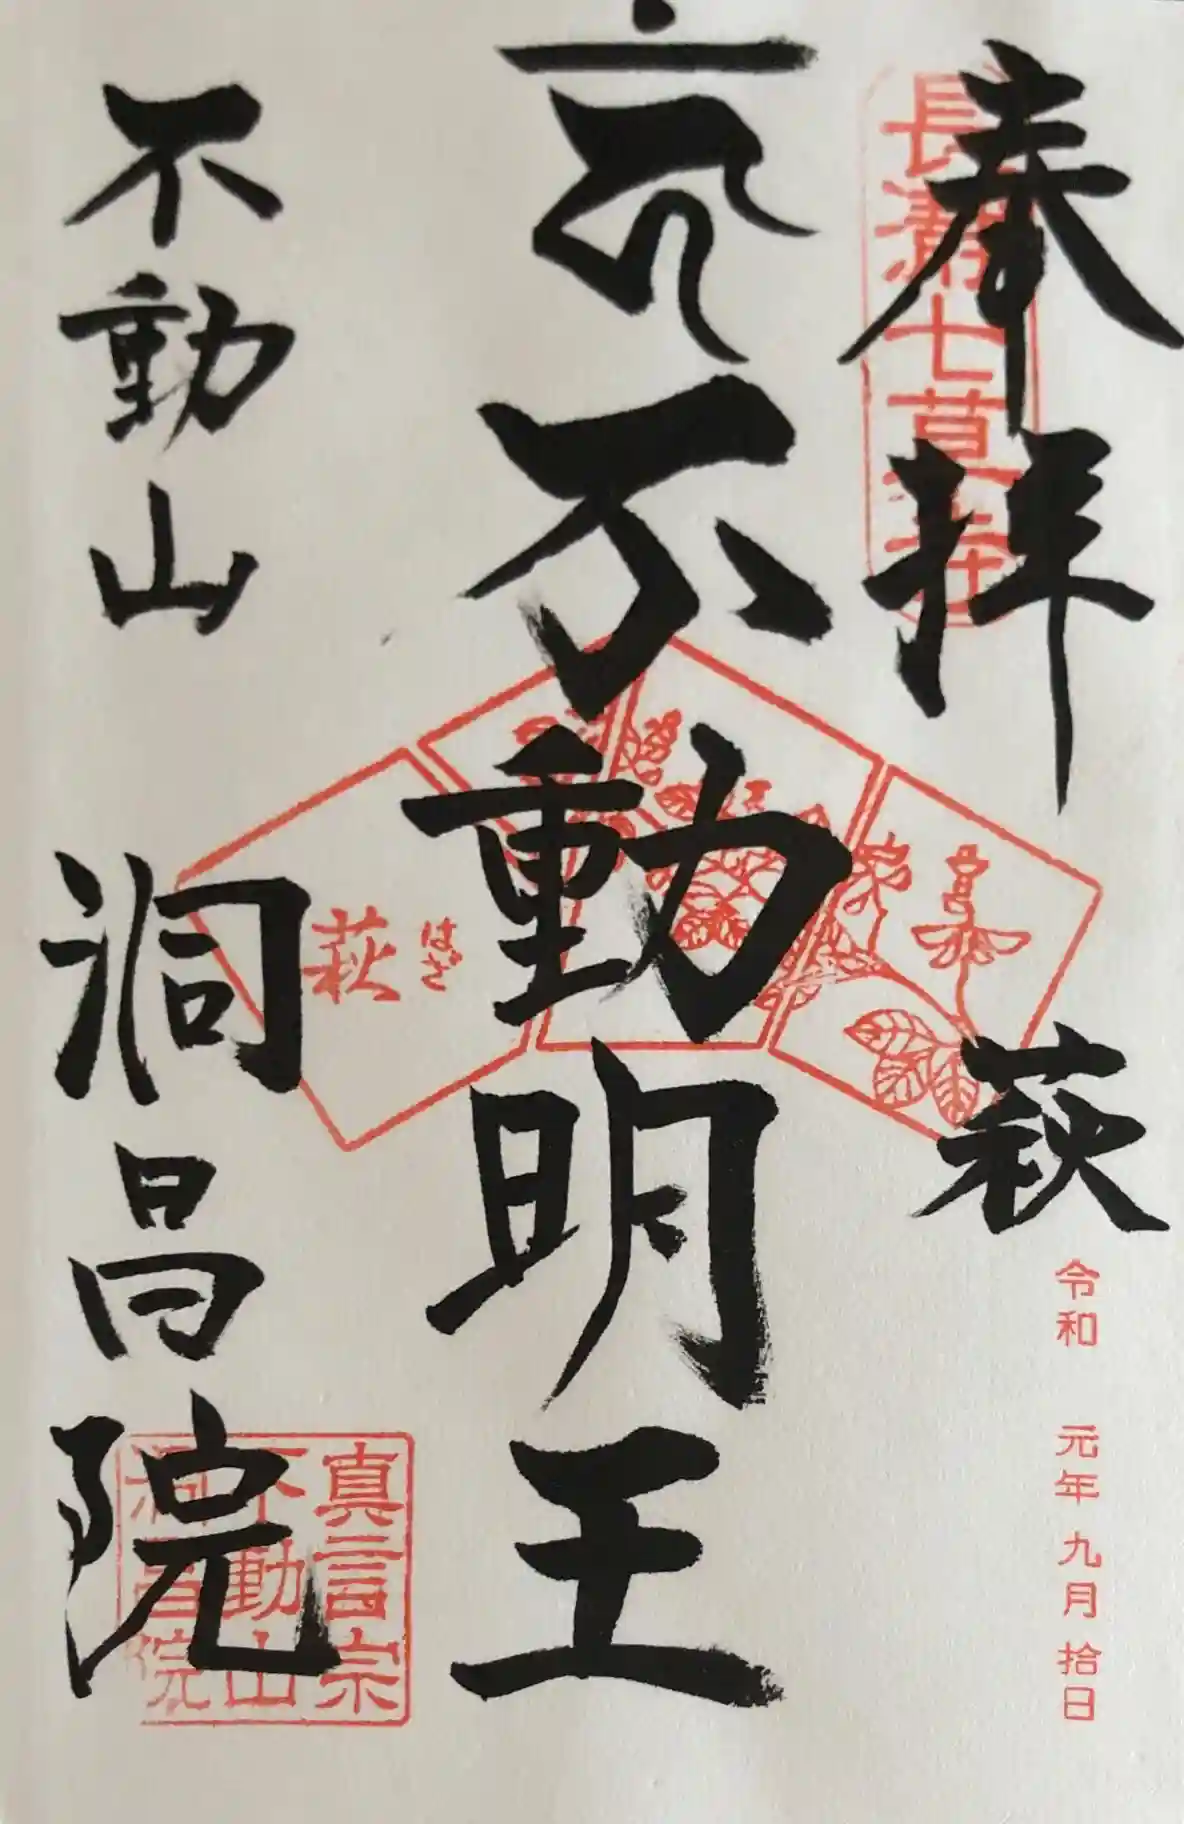 奉拝
長瀞七草寺
萩
令和 元年 九月 拾日
不動明王
はぎ
萩
不動山
洞昌院
真言宗
不動山
洞昌院